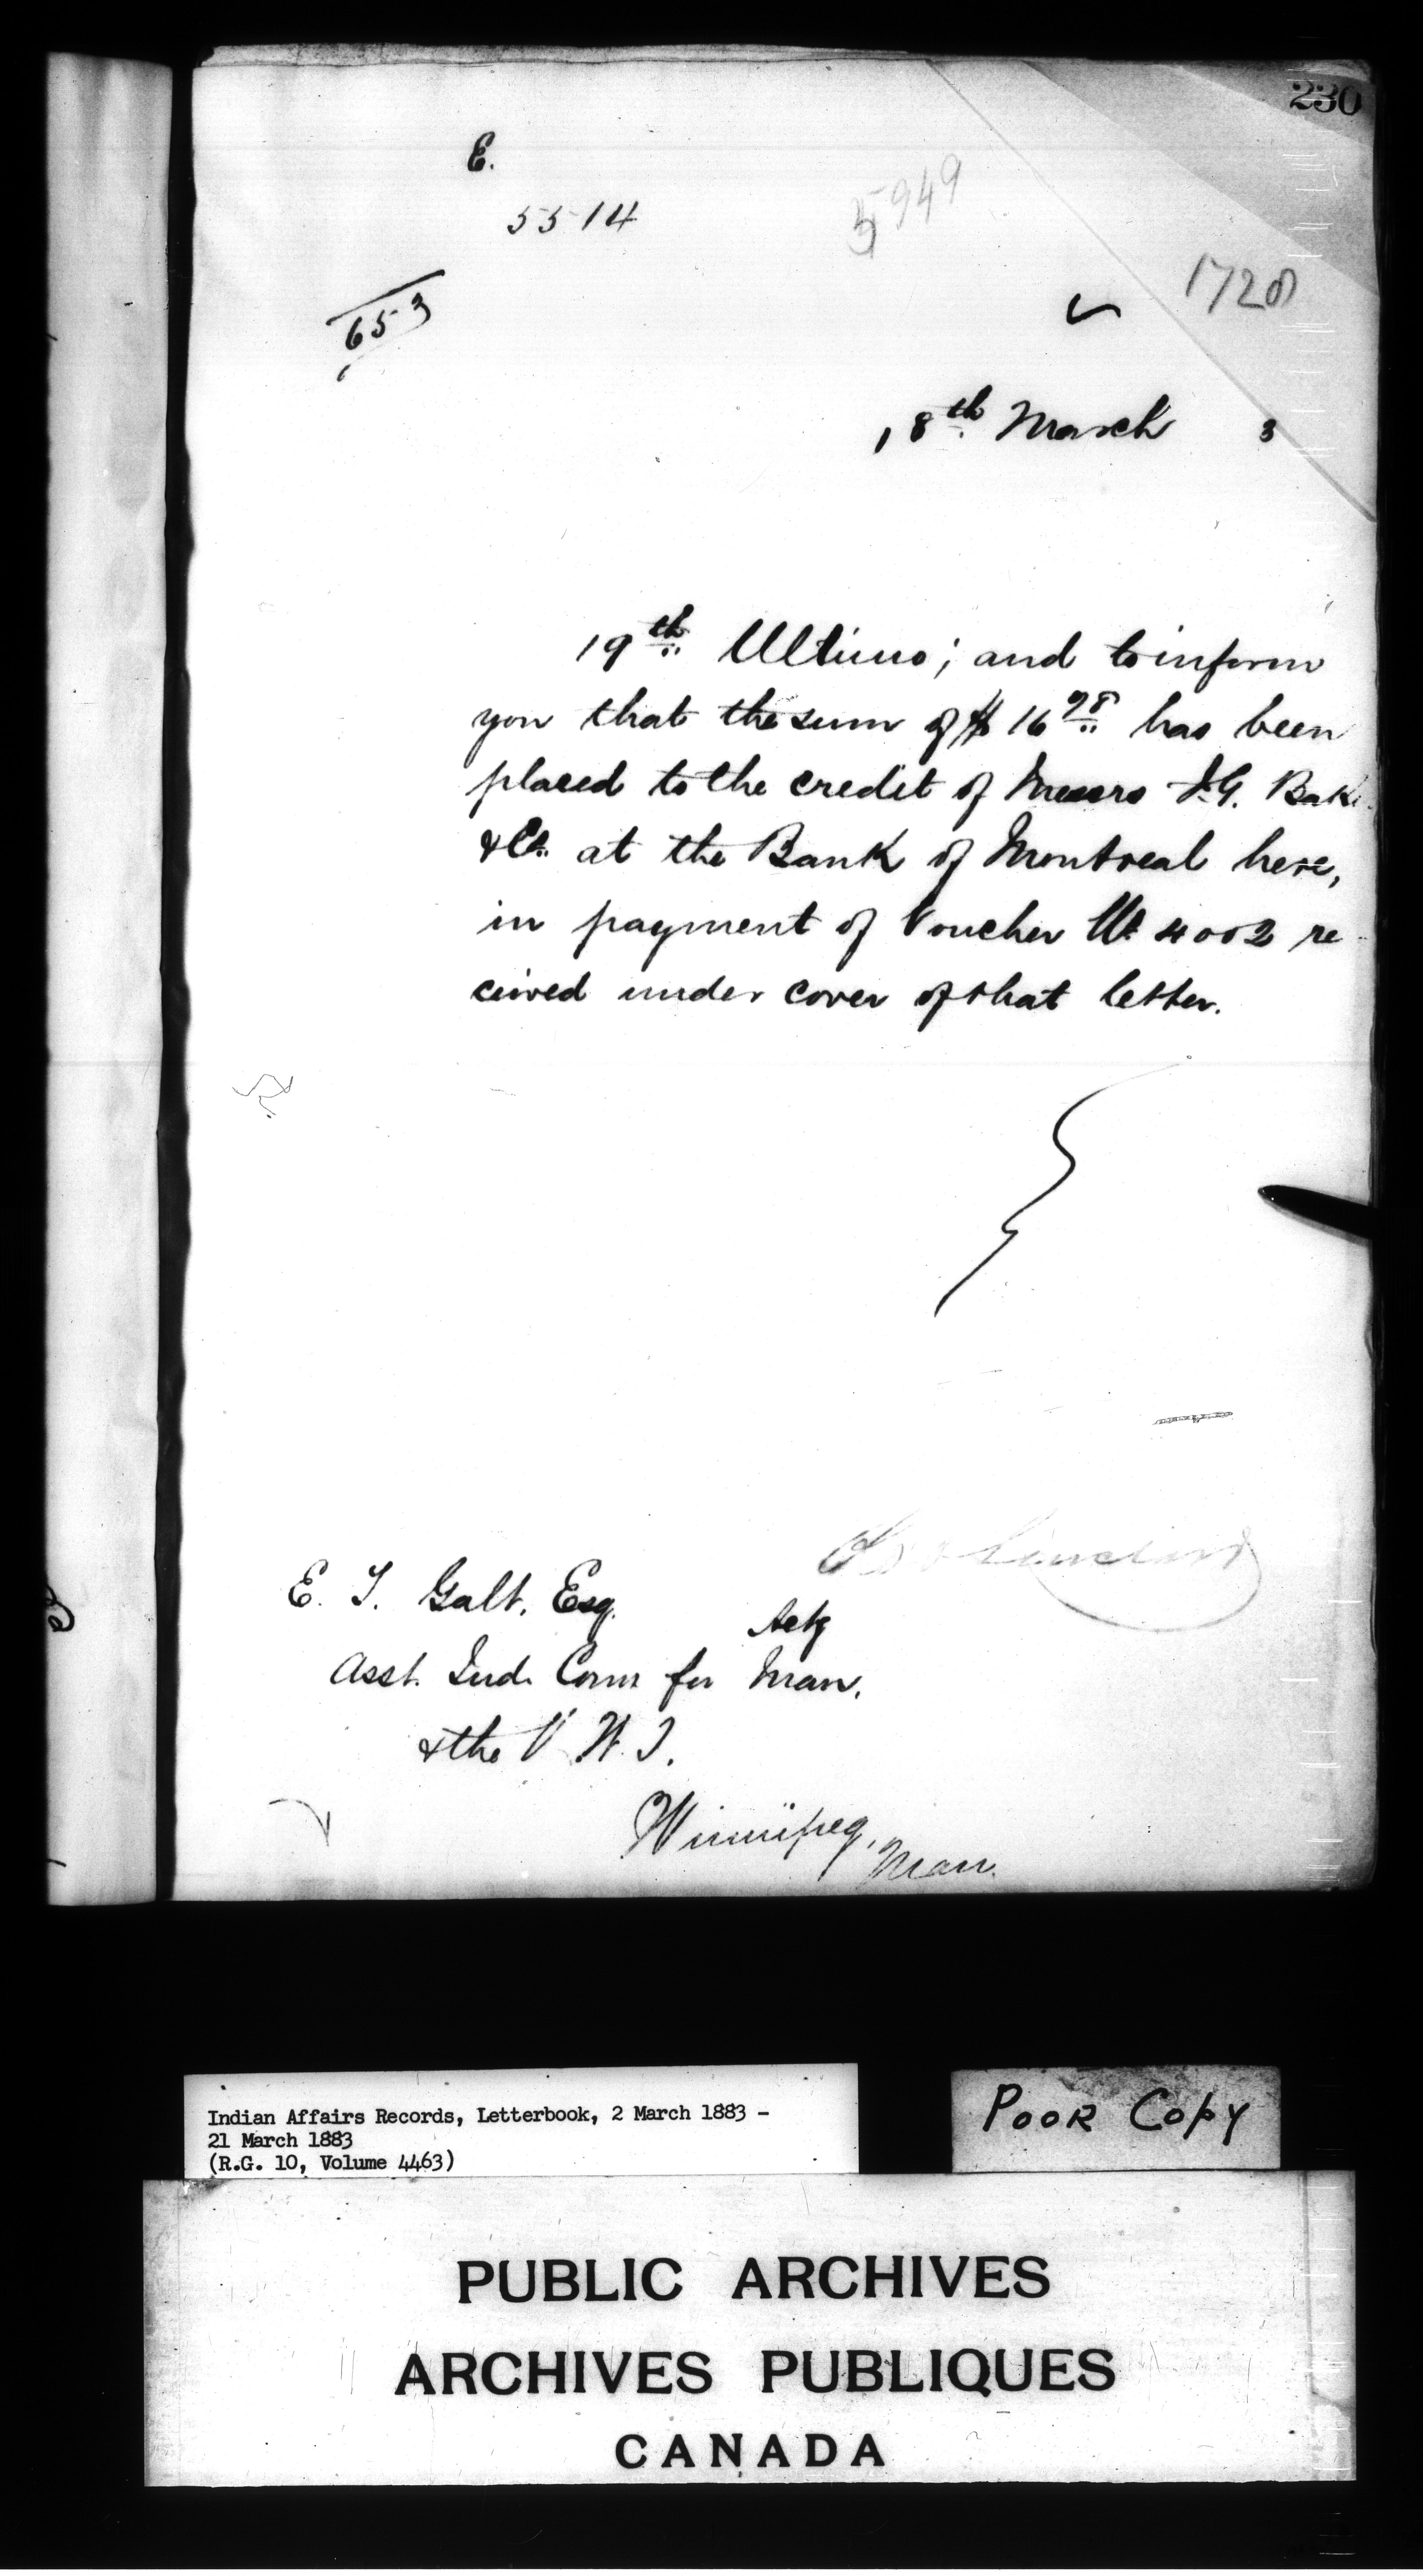 230
E.
5514
5949
653
1728
18th March 3
19th Ultimo; and to inform
you that the sum of $16 98 has been
placed to the credit of Messrs I.G. Bake
& Co. at the Bank of Montreal here,
in payment of Voucher No 4002 re
ceived under cover of that letter.
E. T. Galt, Esq.
Actg
Asst. Ind. Comr for Man.
& the N. W. T.
Winnipeg,
Man.
Indian Affairs Records, Letterbook, 2 March 1883 -
21 March 1883
(R.G. 10, Volume 4463)
POOR COPY
PUBLIC ARCHIVES
ARCHIVES PUBLIQUES
CANADA